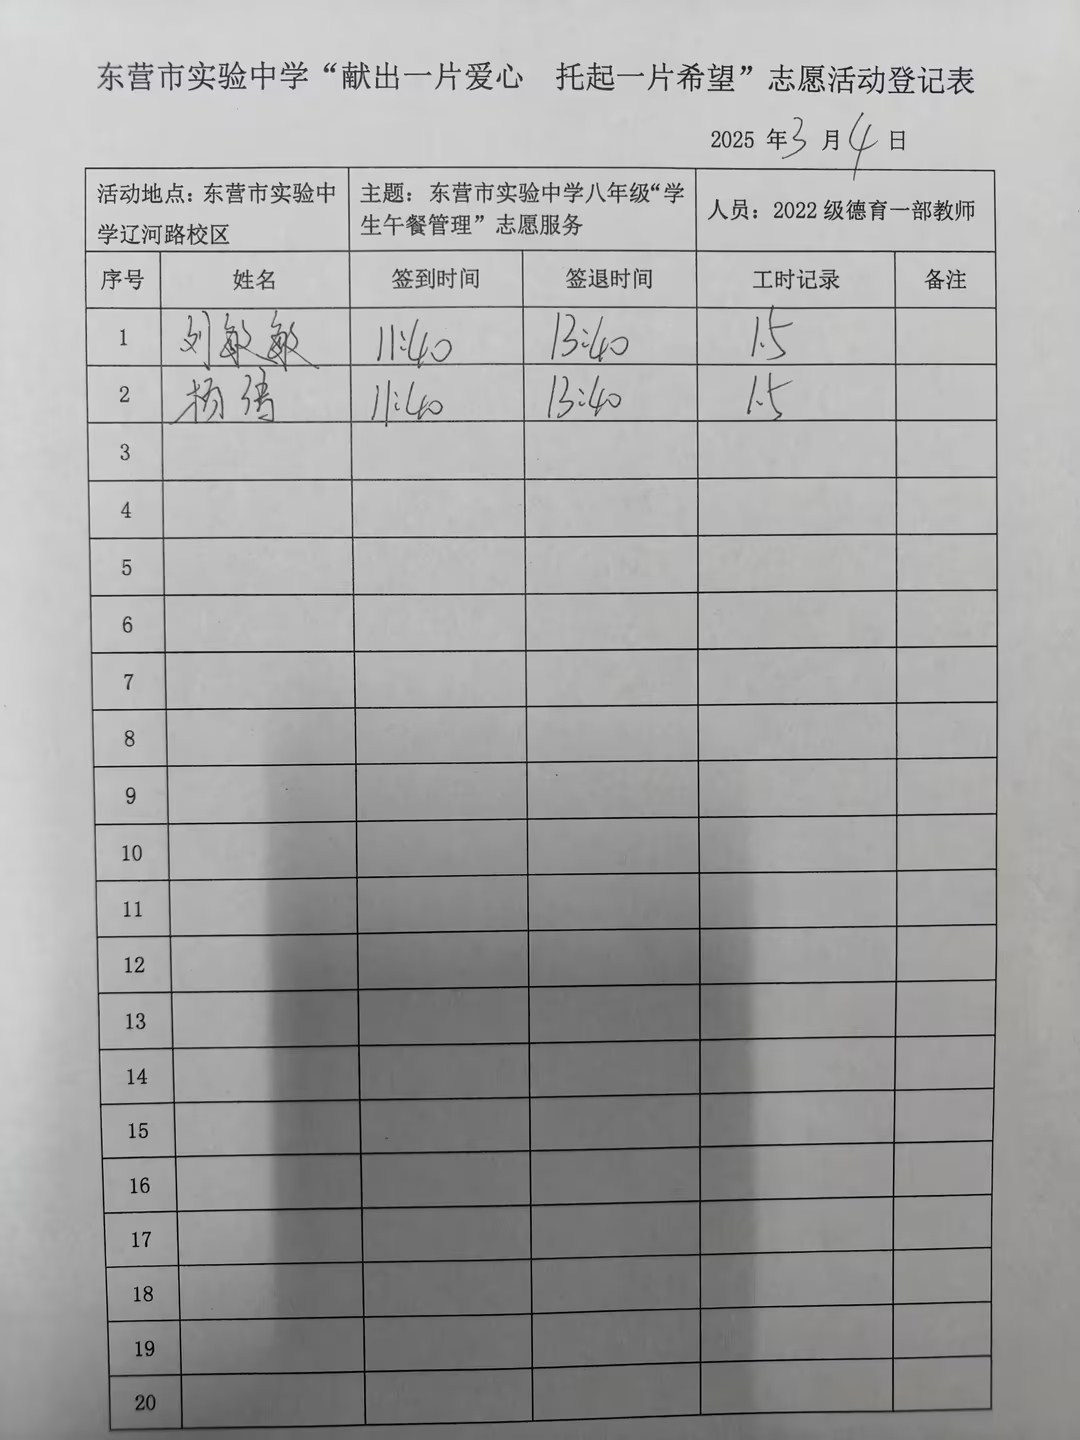 东营市实验中学“献出一片爱心　托起一片希望”志愿活动登记表
2025 年 3 月 4 日
活动地点：东营市实验中学辽河路校区 主题：东营市实验中学八年级“学生午餐管理”志愿服务 人员：2022 级德育一部教师
序号 姓名 签到时间 签退时间 工时记录 备注
1 刘敏敏 11:40 13:40 1.5
2 杨倩 11:40 13:40 1.5
3
4
5
6
7
8
9
10
11
12
13
14
15
16
17
18
19
20